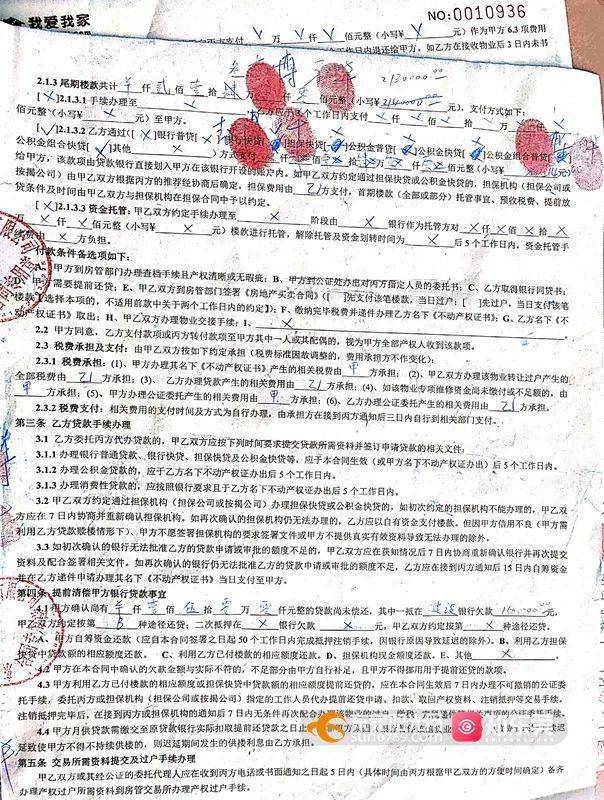 我爱我家
NO:0010936
元）作为甲方 6.3 项费用
2.1.3 尾期楼款共计
佰元整（小写¥
元），支付方式如下：
[ × ]2.1.3.1 手续办理至
个工作日内支付
佰元整（小写¥
[√]2.1.3.2 乙方通过([ × ]银行普贷[
公积金快贷[
]公积金组合普贷[
公积金组合快贷[
]其他 × ）方式支付
给甲方，该款项由贷款银行直接划入甲方在该银行开设的账户内。如甲乙双方约定通过担保快贷或公积金快贷的，担保机构（担保公司或
按揭公司）由甲乙双方根据丙方的推荐经协商后确定，担保费用由 乙 方支付，首期楼款（全部或部分）托管事宜、预收税费、提前放
贷条件及时间由甲乙双方与担保机构在担保合同中予以约定。
[ × ]2.1.3.3 资金托管：甲乙双方约定手续办理至 × 阶段由 × 银行作为托管方对 × 仟 × 佰 × 拾 ×
万 × 仟 × 佰元整（小写¥ × 元）楼款进行托管，解除托管及资金划转时间为 × 后 5 个工作日内，资金托管手
续费由 × 方负担。
付款条件备选项如下：
A、甲方到房管部门办理查档手续且产权清晰或无瑕疵；B、甲方到公证处办出对丙方指定人员的委托书；C、乙方取得银行同贷书；
D、甲方需要提前还贷；E、甲乙双方到房管部门签署《房地产买卖合同》（[ ]先付该笔楼款，当日过户；[ ]先过户，当日支付该笔
楼款【选择本项的，不适用前款中关于两个工作日内的约定】）；F、缴纳完毕税费并递件办理乙方名下《不动产权证书》；G、乙方名下《不
动产权证书》取出；H、甲乙双方办理物业交接手续；I、 × 。
2.2 甲方同意，乙方支付款项或丙方转付款项至甲方其中一人或其配偶的，视为甲方全部产权人收到该款项。
2.3 税费承担及支付：由甲乙双方按如下约定承担（税费标准因故调整的，费用承担方不作变化）：
2.3.1 税费承担：(1)、甲方办理其名下《不动产权证书》产生的相关税费由 甲 方承担；(2)、甲乙双方办理该物业转让过户产生的
全部税费由 乙 方承担；(3)、乙方办理贷款产生的相关费用由 乙 方承担；(4)、如该物业专项维修资金尚未缴付或不足额的，由
甲 方承担；(5)、甲方办理公证委托产生的相关费用由 甲 方承担；(6)、乙方办理公证委托产生的相关费用由 乙 方承担。
2.3.2 税费支付：相关费用的支付时间及方式为自行办理，由承担方在接到丙方通知后三日内自行到相关部门支付。
第三条 乙方贷款手续办理
3.1 乙方委托丙方代办贷款的，甲乙双方应按下列时间要求提交贷款所需资料并签订申请贷款的相关文件：
3.1.1 办理银行普通贷款、银行快贷、担保快贷及公积金快贷等，应于本合同生效（或甲方名下不动产权证办出）后 5 个工作日内。
3.1.2 办理公积金贷款的，应于乙方名下不动产权证办出后 5 个工作日内。
3.1.3 办理消费性贷款的，应按照银行要求且于乙方名下不动产权证办出后 5 个工作日内。
3.2 甲乙双方约定通过担保机构（担保公司或按揭公司）办理担保快贷或公积金快贷的，如初次约定的担保机构不能办理的，甲乙双
方应在 7 日内协商并重新确认担保机构。如再次确认的担保机构仍无法办理的，乙方应以自有资金支付楼款。但因甲方信用不良（甲方需
利用乙方贷款赎楼情形下）、甲方不愿签署担保机构的要求签署文件或甲方不提供真实有效资料导致无法办理的除外。
3.3 如初次确认的银行无法批准乙方的贷款申请或审批的额度不足的，甲乙双方应在获知情况后 7 日内协商重新确认银行并再次提交
资料及配合签署相关文件。如再次确认的银行仍无法批准乙方的贷款申请或审批的额度不足的，乙方应在接到丙方通知后 15 日内自筹资金
并在乙方递件申请办理其名下《不动产权证书》当日支付至甲方。
第四条 提前清偿甲方银行贷款事宜
4.1 甲方确认尚有
仟元整的贷款尚未偿还，其中一抵在 建设 银行欠款
元，
甲乙双方约定按第 B 种途径还贷；二次抵押在 × 银行欠款 × 元，甲乙双方约定按第 × 种途径还贷。
A、甲方自筹资金还款（应自本合同签署之日起 50 个工作日内完成抵押注销手续，因银行原因导致延迟的除外）。B、利用乙方担保
快贷中贷款额的相应额度还款。 C、利用乙方已付楼款的相应额度还款。D、担保机构现金额度还款。E、其他： × 。
4.2 甲方在本合同中确认的欠款金额与实际不符的，不足部分由甲方自行补足，且甲方不得挪用用于提前还贷的款项。
4.3 甲方利用乙方已付楼款的相应额度或担保快贷中贷款额的相应额度提前还贷的，应在本合同生效后 7 日内办理不可撤销的公证委
托手续，委托丙方或担保机构（担保公司或按揭公司）指定的工作人员代办提前还贷申请、扣款、取回产权资料、注销抵押等交易手续，
注销抵押完毕后，在接到丙方或担保机构的通知后 7 日内无条件再次配合办理
4.4 甲方月供贷款需缴交至原贷款银行实际扣取提前还贷款之日止
延致使甲方不得不持续供楼的，则迟延期间发生的供楼利息由乙方承担。
第五条 交易所需资料提交及过户手续办理
甲乙双方或其经公证的委托代理人应在收到丙方电话或书面通知之日起 5 日内（具体时间由丙方根据甲乙双方的方便时间确定）备齐
办理产权过户所需资料到房管交易所办理产权过户手续。